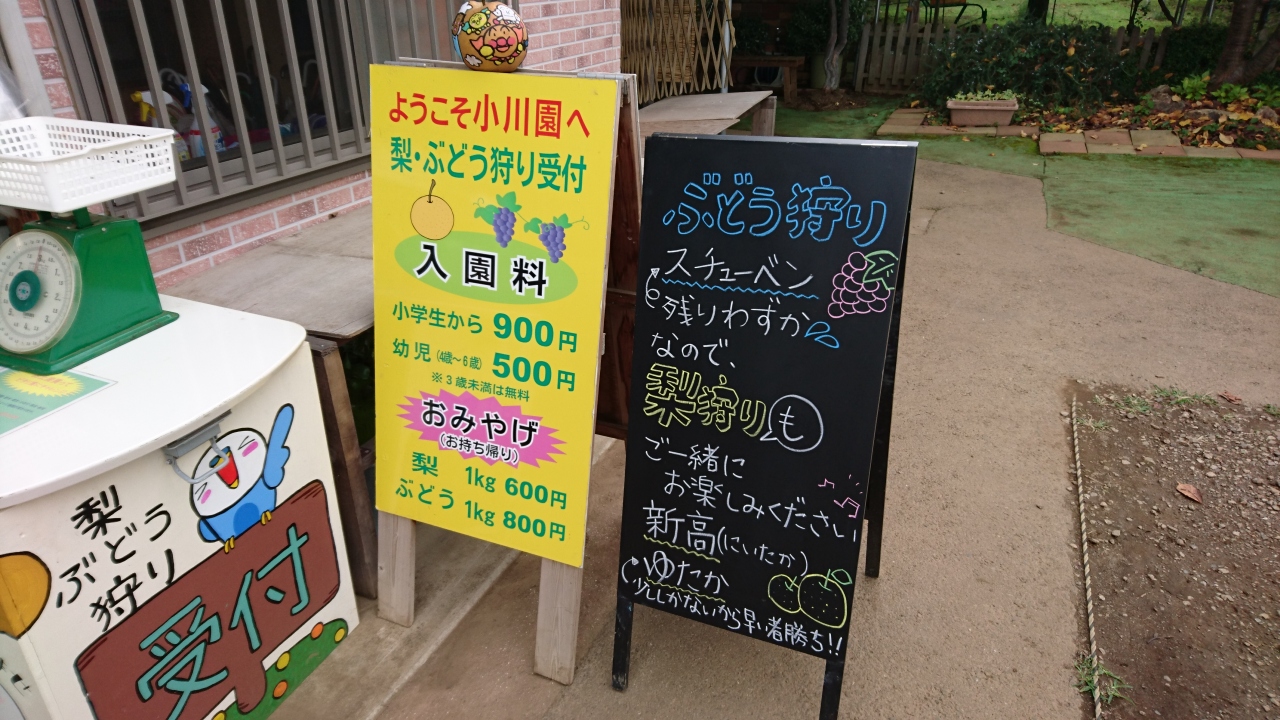 ようこそ小川園へ
梨・ぶどう狩り受付
入園料
小学生から 900円
幼児(4歳～6歳) 500円
※3歳未満は無料
おみやげ
(お持ち帰り)
梨 1kg 600円
ぶどう 1kg 800円
ぶどう狩り
スチューベン
残りわずか
なので、
梨狩りも
ご一緒に
お楽しみください
新高(にいたか)
ゆたか
少ししかないから早い者勝ち!!
梨
ぶどう
狩り
受付